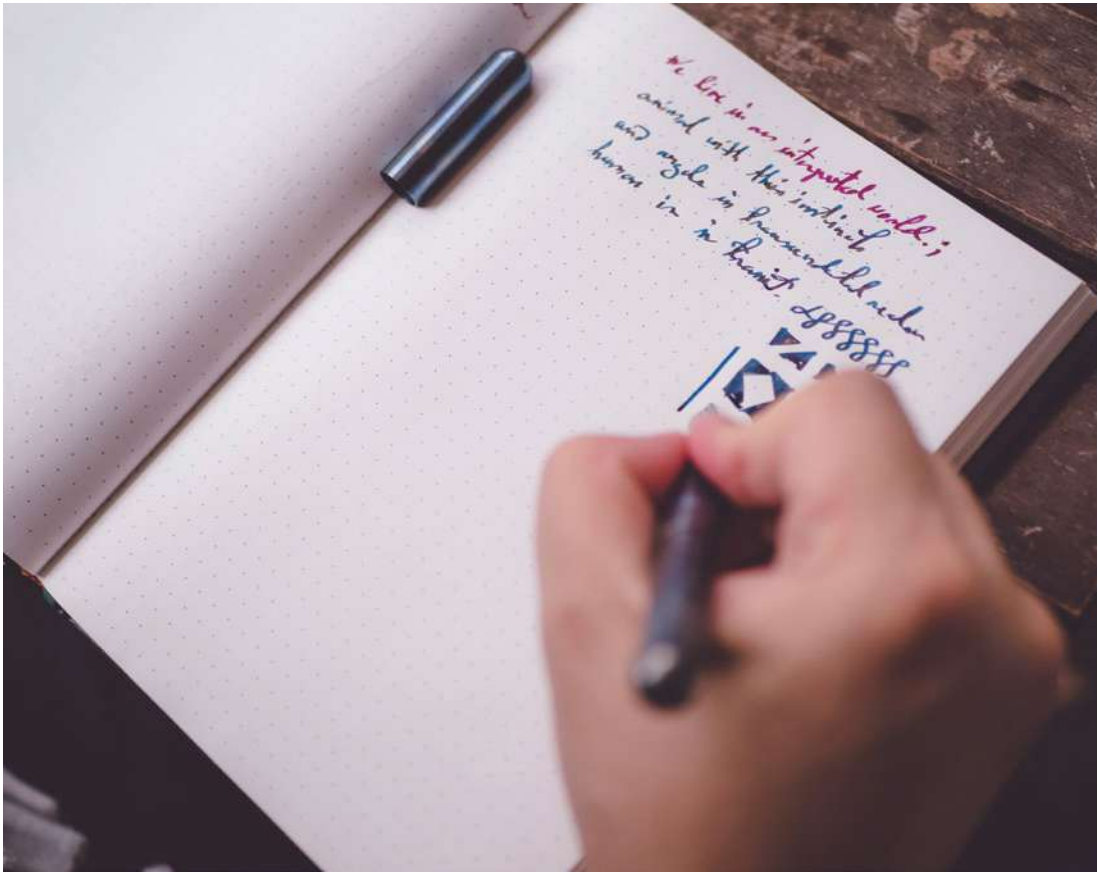 We live in an interpreted world;
animal with their instinct
and angels in transcendental realm
human in in transit.